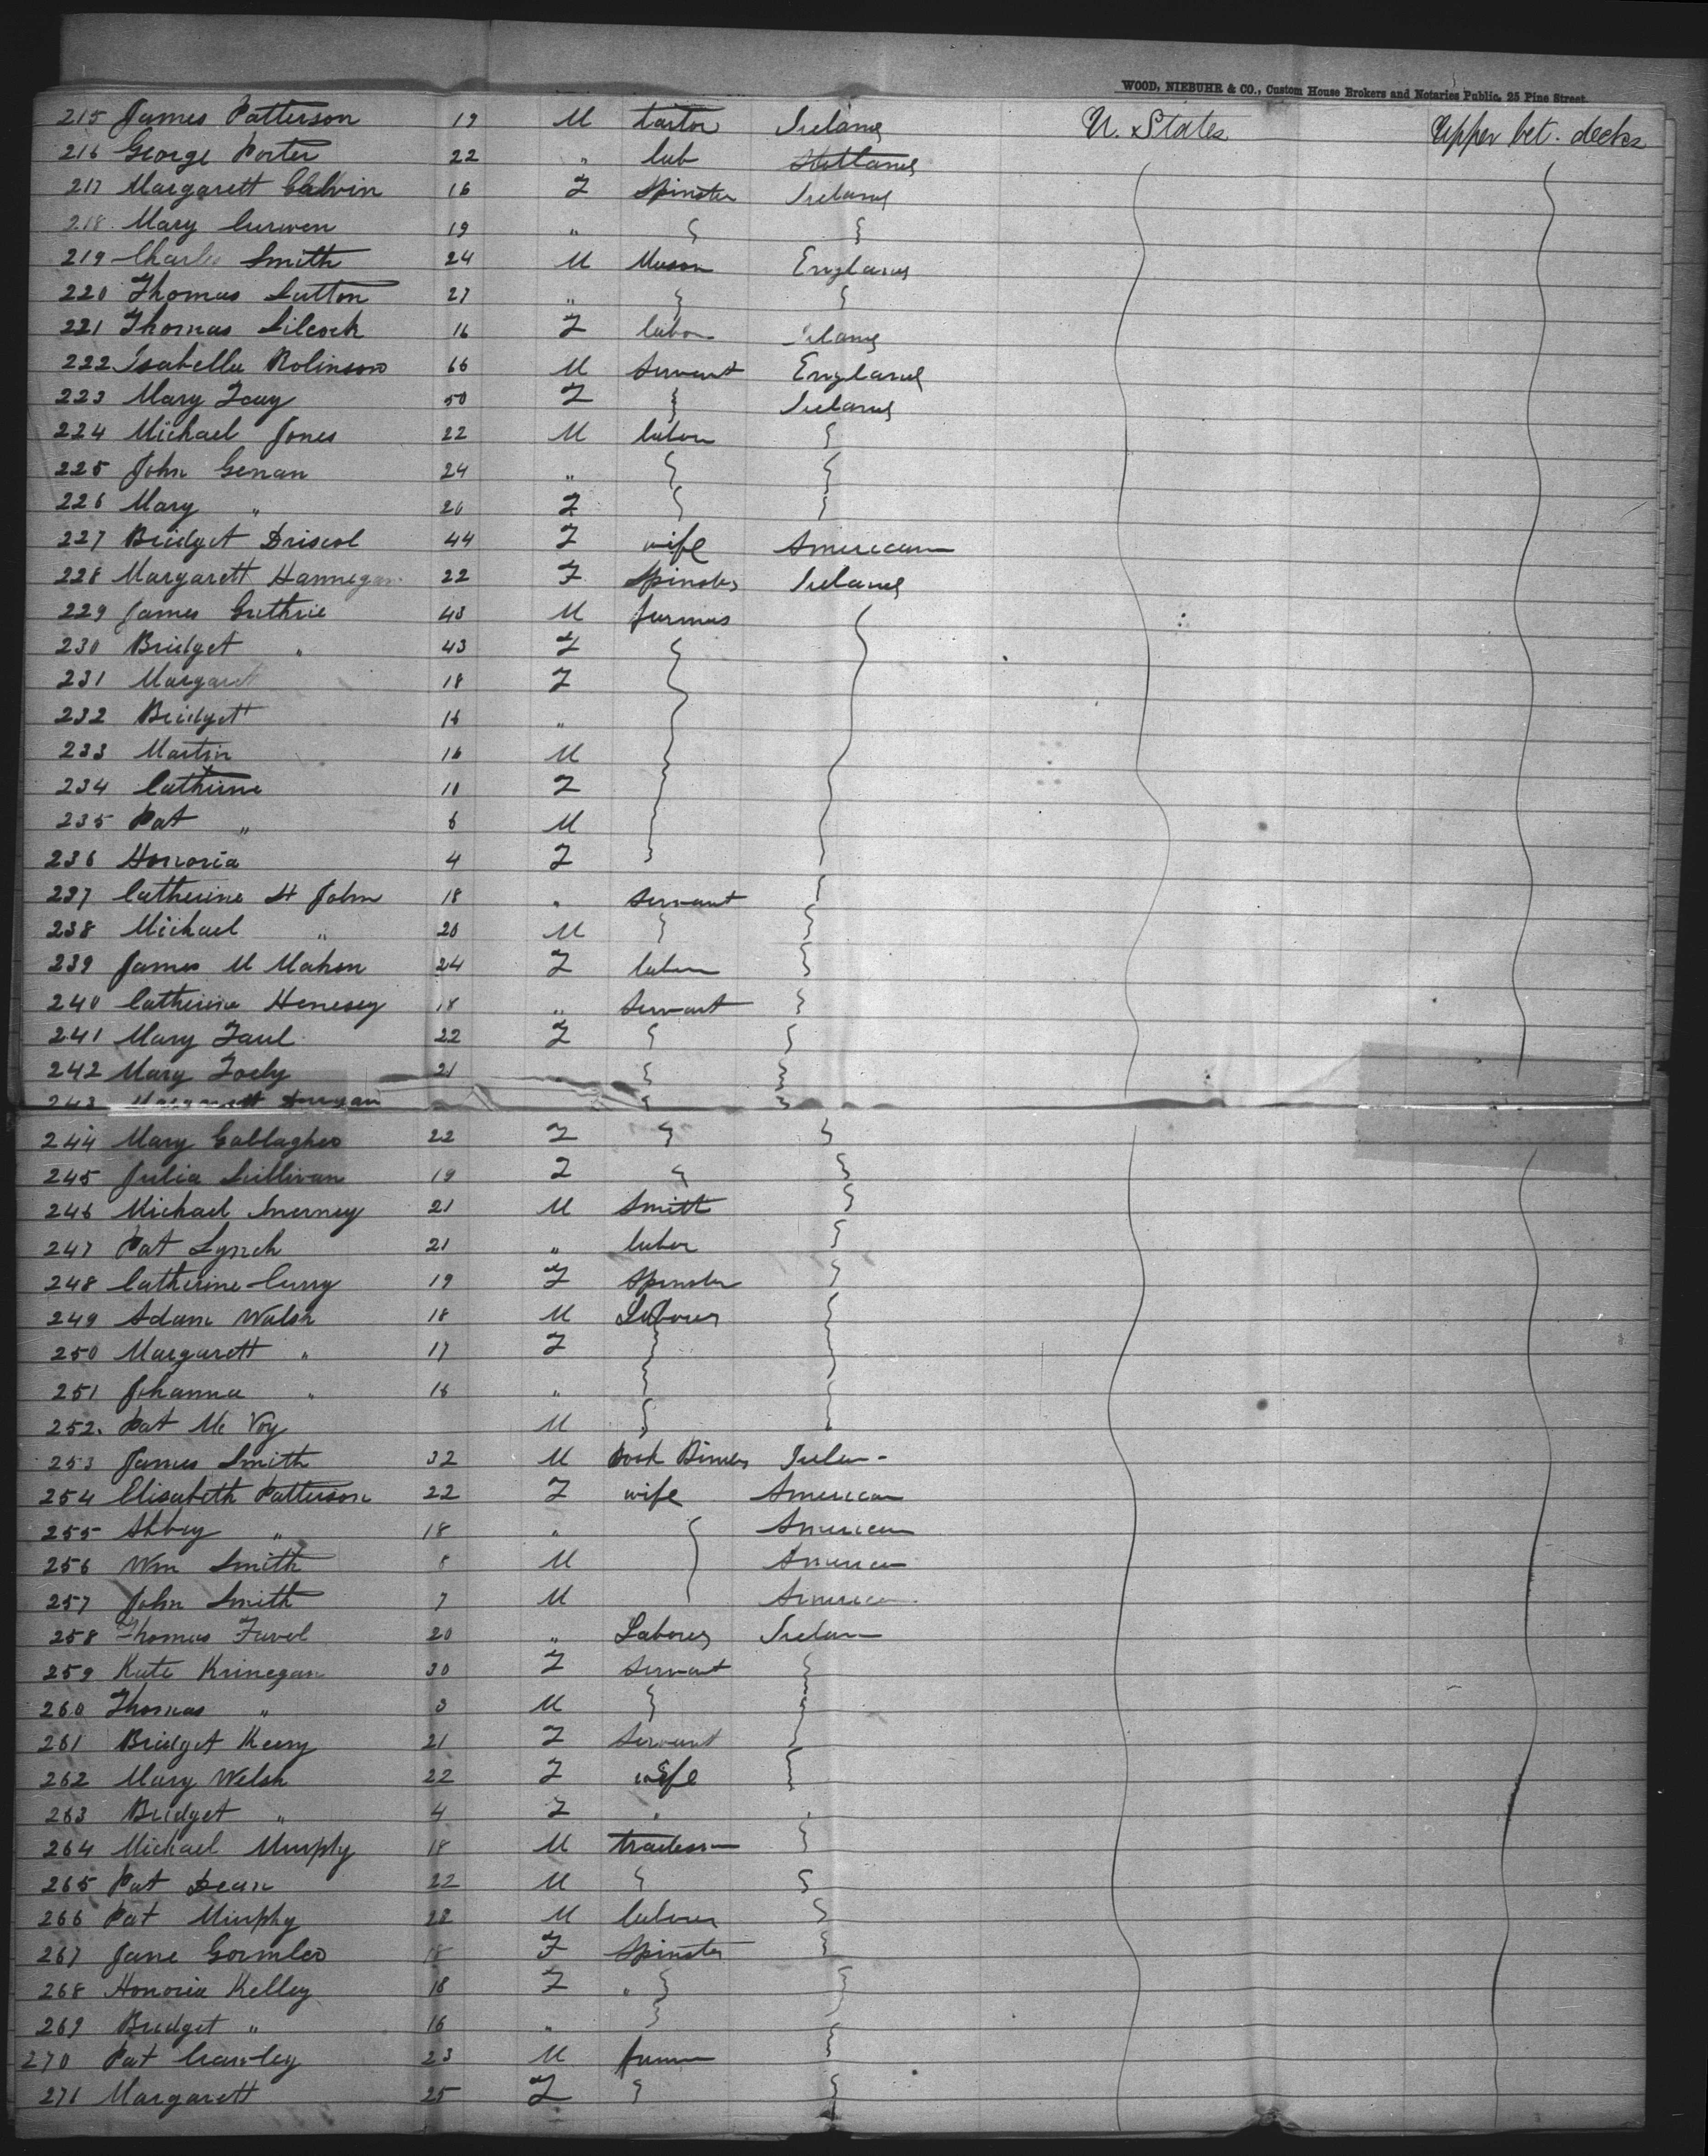 WOOD, NIEBUHR & CO., Custom House Brokers and Notaries Public, 25 Pine Street.
215 James Patterson 19 M tailor Ireland U. States Upper bet. decks
216 George Porter 22 " lab
217 Margarett Calvin 16 F Spinster Ireland
218 Mary Curwen 19 "
219 Charles Smith 24 M Mason England
220 Thomas Sutton 27 "
221 Thomas Silcock 16 F labor Ireland
222 Isabella Robinson 66 M Servant England
223 Mary 50 F Ireland
224 Michael Jones 22 M labor
225 John Genan 24 "
226 Mary " 20 F
227 Bridget Driscol 44 F wife American
228 Margarett Hannegan 22 F Spinster Ireland
229 James Guthrie 43 M farmer
230 Bridget " 43 F
231 Margaret 18 F
232 Bridgett 16 "
233 Martin 16 M
234 Catherine 10 F
235 Pat " 6 M
236 Honoria 4 F
237 Catherine St John 18 " Servant
238 Michael " 20 M
239 James M Mahon 24 F labor
240 Catherine Henesey 18 " Servant
241 Mary Faul 22 F
242 Mary Foely 21
243
244 Mary Gallagher 22 F
245 Julia Sullivan 19 F
246 Michael Inerney 21 M Smith
247 Pat Lynch 21 " labor
248 Catherine Curry 19 F Spinster
249 Adam Walsh 18 M Laborer
250 Margarett " 17 F
251 Johanna " 16 "
252. Pat Mc Voy M
253 James Smith 32 M Book Binder Irelan-
254 Elisabeth Patterson 22 F wife American
255 Abbey " 18 " American
256 Wm Smith 8 M American
257 John Smith 7 M American
258 Thomas Favel 20 " Laborer Ireland
259 Kate Krinegan 30 F Servant
260 Thomas " 3 M
261 Bridget Keery 21 F Servant
262 Mary Welsh 22 F wife
263 Bridget " 4 F "
264 Michael Murphy 18 M tradesman
265 Pat Dean 22 M
266 Pat Murphy 28 M laborer
267 Jane Gormleo 18 F Spinster
268 Honoria Kelley 18 F "
269 Bridget " 16 "
270 Pat Crawley 23 M farmer
271 Margarett 25 F